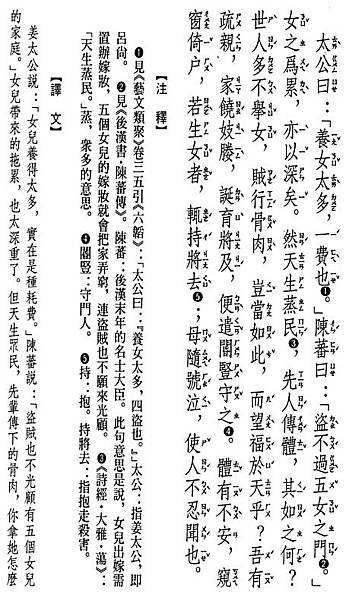 太公曰：「養女太多，一費也❶。」陳蕃曰：「盜不過五女之門❷。」
女之爲累，亦以深矣。然天生蒸民❸，先人傳體，其如之何？
世人多不舉女，賊行骨肉，豈當如此，而望福於天乎？吾有
疏親，家饒妓媵，誕育將及，便遣閽豎守之❹。體有不安，窺
窗倚户，若生女者，輒持將去❺；母隨號泣，使人不忍聞也。
【注 釋】
❶見《藝文類聚》卷三五引《六韜》：「太公曰：『養女太多，四盜也。』」太公：指姜太公，即
呂尚。❷見《後漢書·陳蕃傳》。陳蕃：後漢末年的名士大臣。此句意思是說，女兒出嫁需
置辦嫁妝，五個女兒的嫁妝就會把家弄窮，連盜賊也不願來光顧。❸《詩經·大雅·蕩》：
「天生蒸民。」蒸，衆多的意思。❹閽豎：守門人。❺持：抱。持將去：指抱走殺害。
【譯 文】
姜太公說：「女兒養得太多，實在是種耗費。」陳蕃說：「盜賊也不光顧有五個女兒
的家庭。」女兒帶來的拖累，也太深重了。但天生眾民，先輩傳下的骨肉，你拿她怎麼